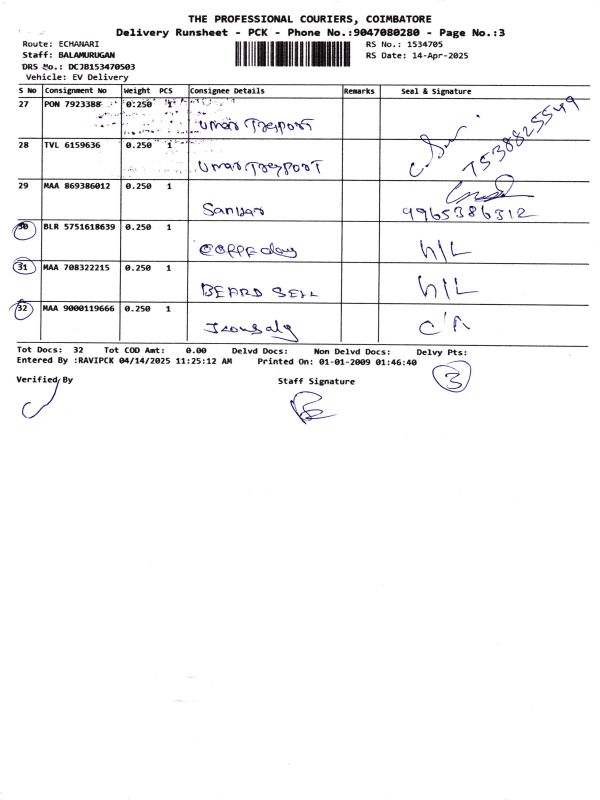 THE PROFESSIONAL COURIERS, COIMBATORE
Delivery Runsheet - PCK - Phone No.:9047080280 - Page No.:3
Route: ECHANARI RS No.: 1534705
Staff: BALAMURUGAN RS Date: 14-Apr-2025
DRS No.: DCJB153470503
Vehicle: EV Delivery
S No Consignment No Weight PCS Consignee Details Remarks Seal & Signature
27 PON 7923388 0.250 1
28 TVL 6159636 0.250 1 7538825549
29 MAA 869386012 0.250 1
9965386312
30 BLR 5751618639 0.250 1 N/L
31 MAA 708322215 0.250 1 N/L
BEARD SELL
32 MAA 9000119666 0.250 1
Tot Docs: 32 Tot COD Amt: 0.00 Delvd Docs: Non Delvd Docs: Delvy Pts:
Entered By :RAVIPCK 04/14/2025 11:25:12 AM Printed On: 01-01-2009 01:46:40
Verified By Staff Signature 3